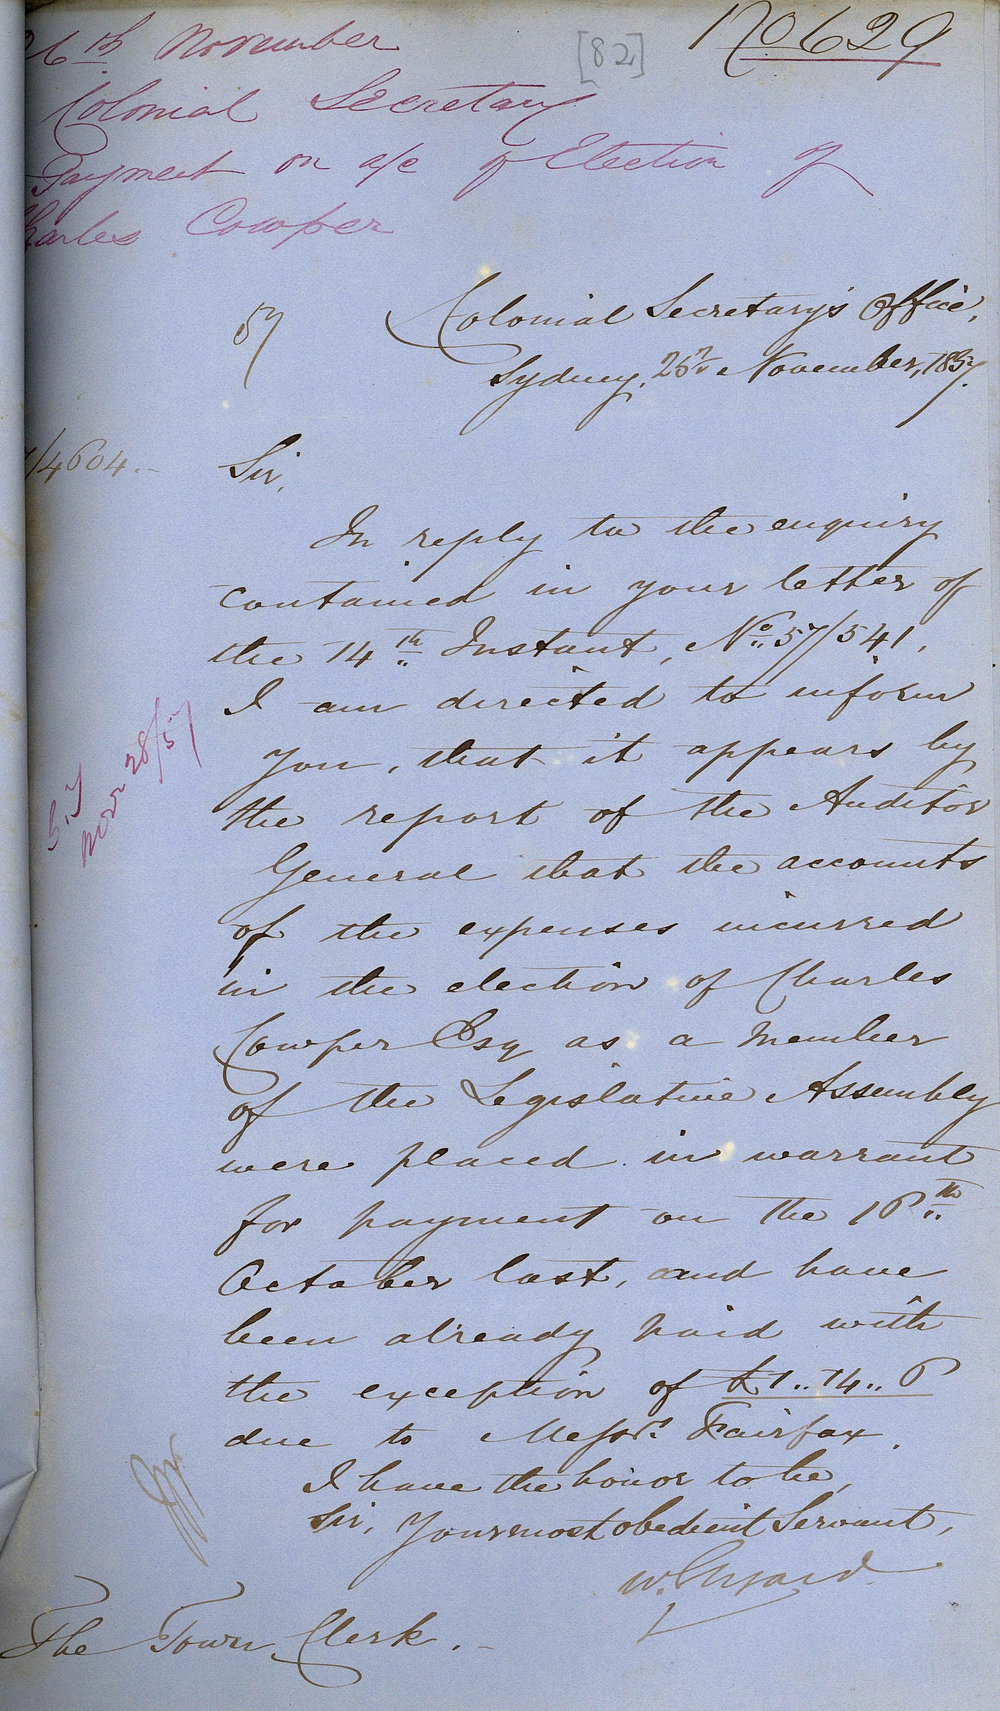 26th November
[82]
No 629
Colonial Secretary
Payment on a/c of Election of
Charles Cowper
57
Colonial Secretary's Office,
Sydney, 25th November, 1857.
/4604.-
Sir,
In reply to the enquiry
contained in your letter of
the 14th Instant, No 57/541,
I am directed to inform
you, that it appears by
the report of the Auditor
General that the accounts
of the expenses incurred
in the election of Charles
Cowper Esq as a Member
of the Legislative Assembly
were placed in warrant
for payment on the 16th
October last, and have
been already paid with
the exception of £1..14..6
due to Messrs. Fairfax.
I have the honor to be,
Sir, Your most obedient Servant,
W. Elyard
The Town Clerk.-
Novr 28/57